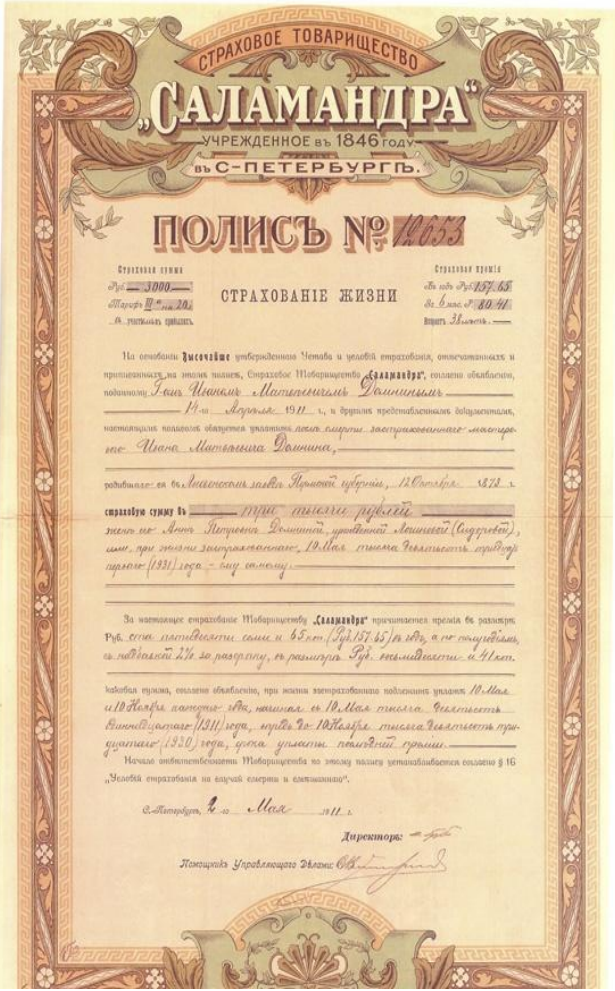 СТРАХОВОЕ ТОВАРИЩЕСТВО
„САЛАМАНДРА“
УЧРЕЖДЕННОЕ въ 1846 году
въ С-ПЕТЕРБУРГѢ.
ПОЛИСЪ № 12653
Страховая сумма
Руб. 3000
Тарифъ III а на 20 л.
съ участіемъ въ прибыляхъ.
СТРАХОВАНІЕ ЖИЗНИ
Страховая премія
Въ годъ Руб. 157.65
За 6 мѣс. Р. 80.41
Возрастъ 38 лѣтъ.
На основаніи Высочайше утвержденнаго Устава и условій страхованія, отпечатанныхъ и
приписанныхъ на этомъ полисѣ, Страховое Товарищество „Саламандра“, согласно объявленію,
поданному Иваномъ Матвѣевичемъ Домнинымъ
14-го Апрѣля 1911 г., и другимъ представленнымъ документамъ,
настоящимъ полисомъ обязуется уплатить послѣ смерти застрахованнаго мастеро-
ваго Ивана Матвѣевича Домнина,
родившагося въ Лысвенскомъ заводѣ Пермской губерніи, 12 Октября 1873 г.
страховую сумму въ три тысячи рублей
женѣ его Аннѣ Петровнѣ Домниной, урожденной
или, при жизни застрахованнаго, 10 Мая тысяча девятьсотъ тридцать
перваго (1931) года - ему самому.
За настоящее страхованіе Товариществу „Саламандра“ причитается премія въ размѣрѣ
Руб. ста пятидесяти семи и 65 коп. (Руб. 157.65) въ годъ, а по полугодіямъ,
съ надбавкой 2% за разсрочку, въ размѣрѣ Руб. восьмидесяти и 41 коп.
каковая сумма, согласно объявленію, при жизни застрахованнаго подлежитъ уплатѣ 10 Мая
и 10 Ноября каждаго года, начиная съ 10 Мая тысяча девятьсотъ
одиннадцатаго (1911) года, впредь до 10 Ноября тысяча девятьсотъ три-
дцатаго (1930) года, срока уплаты послѣдней преміи.
Начало отвѣтственности Товарищества по этому полису устанавливается согласно § 16
„Условій страхованія на случай смерти и смѣшаннаго“.
С.-Петербургъ, 2 го Мая 1911 г.
Директоръ:
Помощникъ Управляющаго Дѣлами: